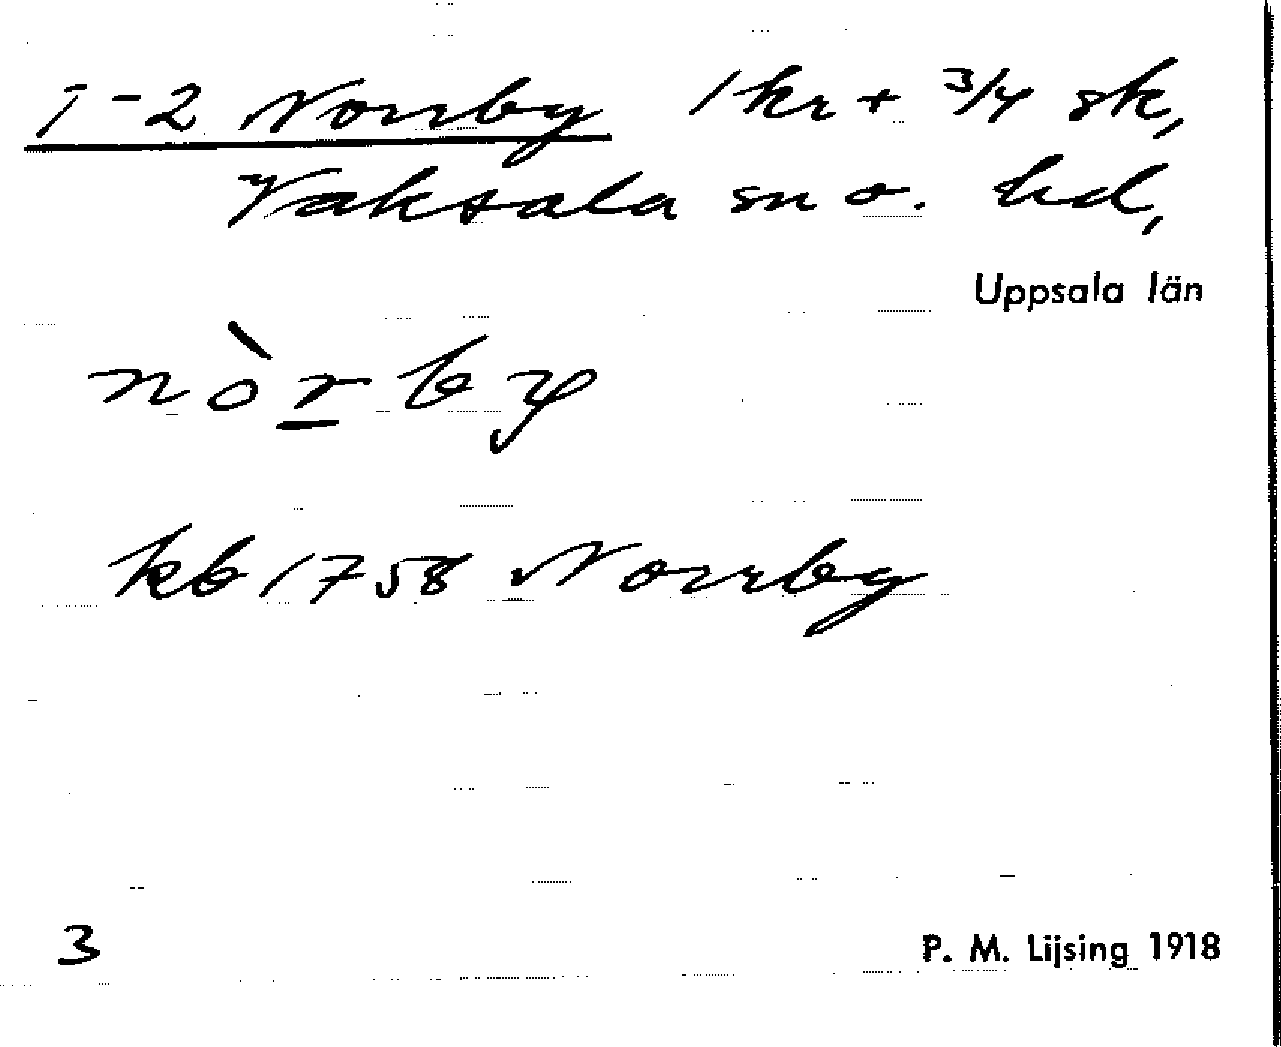 1-2 Norrby 1 kr + 3/4 sk,
Vaksala sn o. hd,
Uppsala län
nòrby
kb 1758 Norrby
3
P. M. Lijsing 1918